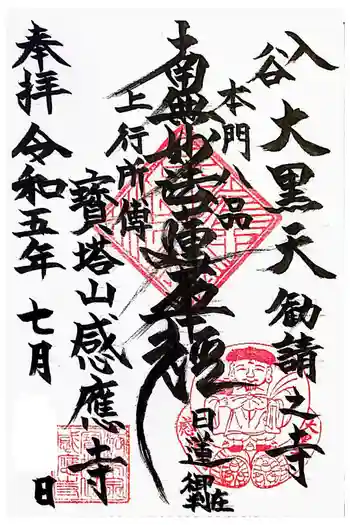 入谷大黒天勧請之寺
本門八品
南無妙法蓮華経
上行所傳
日蓮
在御判
寳塔山感應寺
奉拝令和五年七月 日